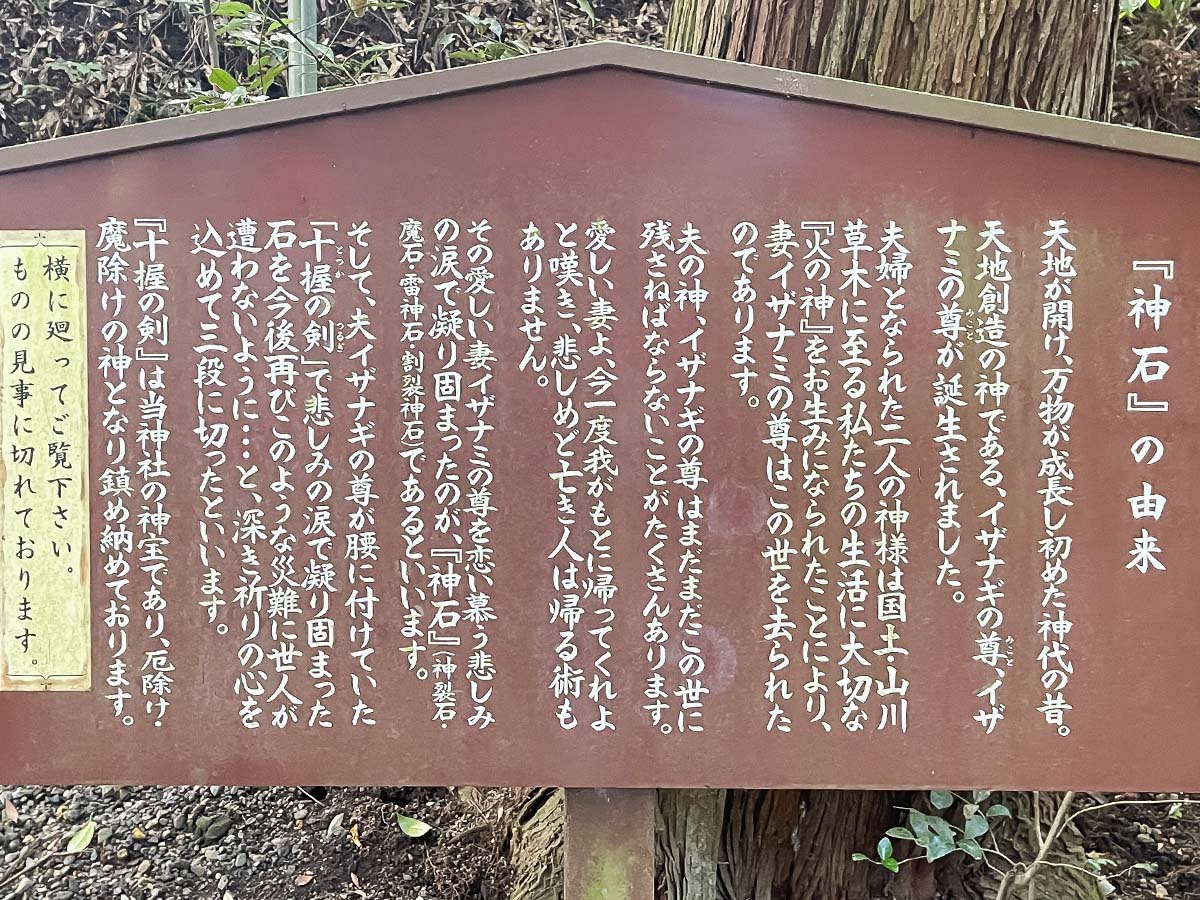 『神石』の由来
天地が開け、万物が成長し初めた神代の昔。
天地創造の神である、イザナギの尊、イザ
みこと
ナミの尊が誕生されました。
みこと
夫婦となられた二人の神様は国土・山川
草木に至る私たちの生活に大切な
『火の神』をお生みになられたことにより、
妻イザナミの尊はこの世を去られた
のであります。
夫の神、イザナギの尊はまだまだこの世に
残さねばならないことがたくさんあります。
愛しい妻よ、今一度我がもとに帰ってくれよ
と嘆き、悲しめど亡き人は帰る術も
ありません。
その愛しい妻イザナミの尊を恋い慕う悲しみ
の涙で凝り固まったのが、『神石』（神裂石・
魔石・雷神石・割裂神石）であるといいます。
そして、夫イザナギの尊が腰に付けていた
「十握の剣」で悲しみの涙で凝り固まった
とつか つるぎ
石を今後再びこのような災難に世人が
遭わないように・・・と、深き祈りの心を
込めて三段に切ったといいます。
『十握の剣』は当神社の神宝であり、厄除け・
魔除けの神となり鎮め納めております。
横に廻ってご覧下さい。
ものの見事に切れております。